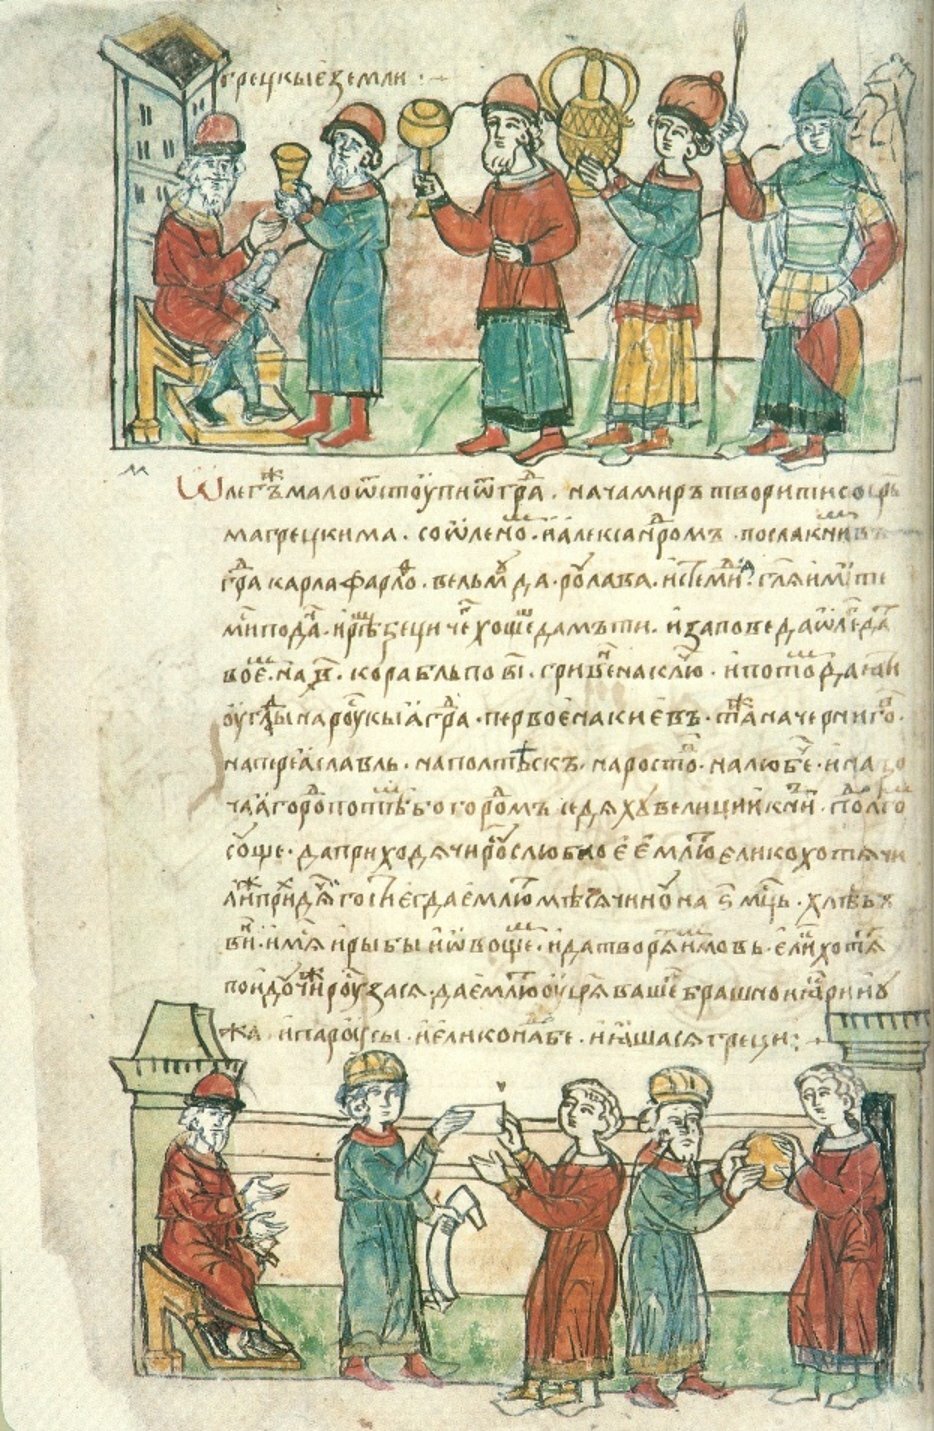 грецкыѣ земли :
Ѡлегъж мало ѿстоупи ѿ гра̑д . нача миръ творити со цр҃ь
ма грецкима . со ѡлено̑м . и алекса̑ндромъ . посла к ни̑м въ
гра̑д карла фарло̑ф . вельмꙋда . рꙋлава . и стеми̑д . гл҃я имите
ми по̑д да̑н . и рѣ̑ша греци чег̑ хоще̑ш дамъ ти . и заповеда ѡле̑г да̑т
вое̑м . на в҃ . корабль по в҃і . гриве̑н на клю̑ч . и пото̑м даѧти
оуглады на роускыа гра̑д . первое на киевъ . та̑ж на черниго̑в .
на переаславль . на полтѣскъ . на росто̑в . на любе̑ч . и на про
чаа горо̑д по тѣ̑м бо горо̑дмъ седяхꙋ велиции кн҃зи . по̑д олго̑м
соуще . да приходячи роу̑с слюбно е емлю̑т елико хотячи
ли̑ж при̑дꙋт гости̑ е̑ да емлю̑т мѣсячинꙋ на ѕ҃ мц҃ь . хлѣбъ
ви̑н . и мяса и рыбы и ѡвоще̑м . и да творя̑т имовь . ели̑к хотя̑т
поидоучи̑ж роу̑с за ся . да емлю̑т оу цр҃я ваше̑г брашно и якори и оу
жа и пароусы . и елико на̑дбе . и яшася греци :